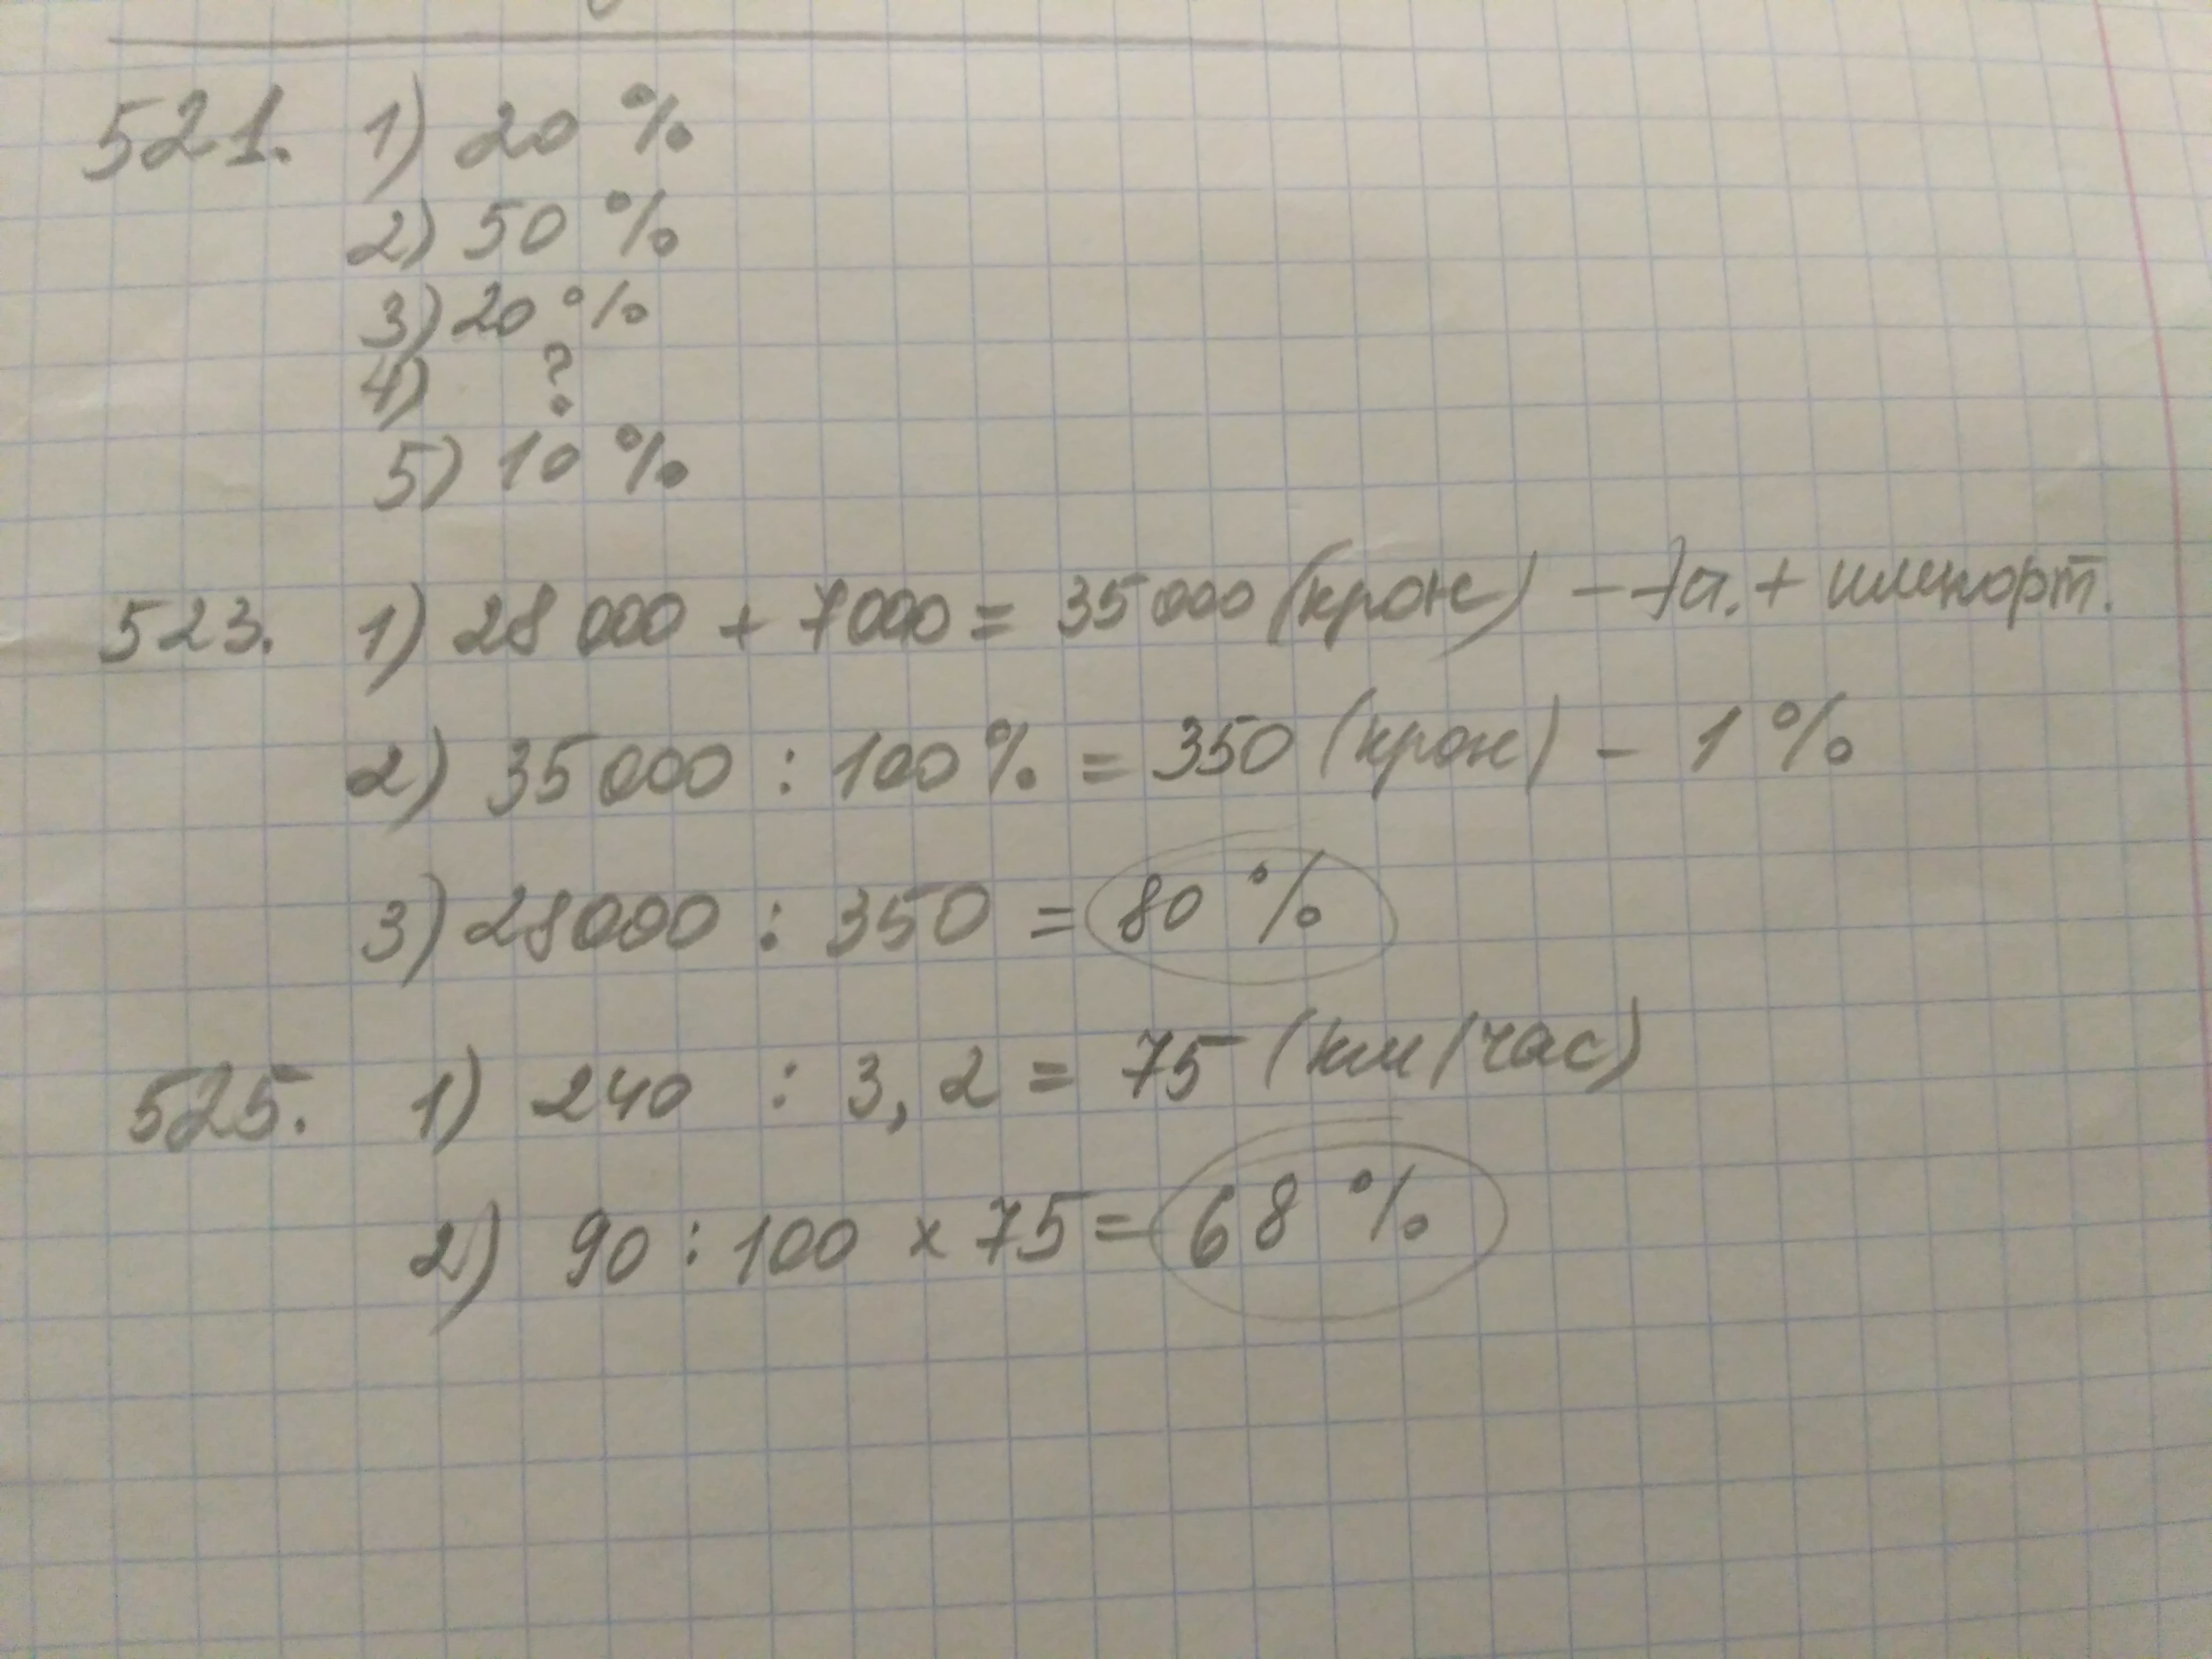 521. 1) 20 %
2) 50 %
3) 20 %
4) ?
5) 10 %
523. 1) 28 000 + 7000 = 35 000 (крон) - + импорт.
2) 35 000 : 100 % = 350 (крон) - 1 %
3) 28000 : 350 = 80 %
525. 1) 240 : 3,2 = 75 (км/час)
2) 90 : 100 x 75 = 68 %